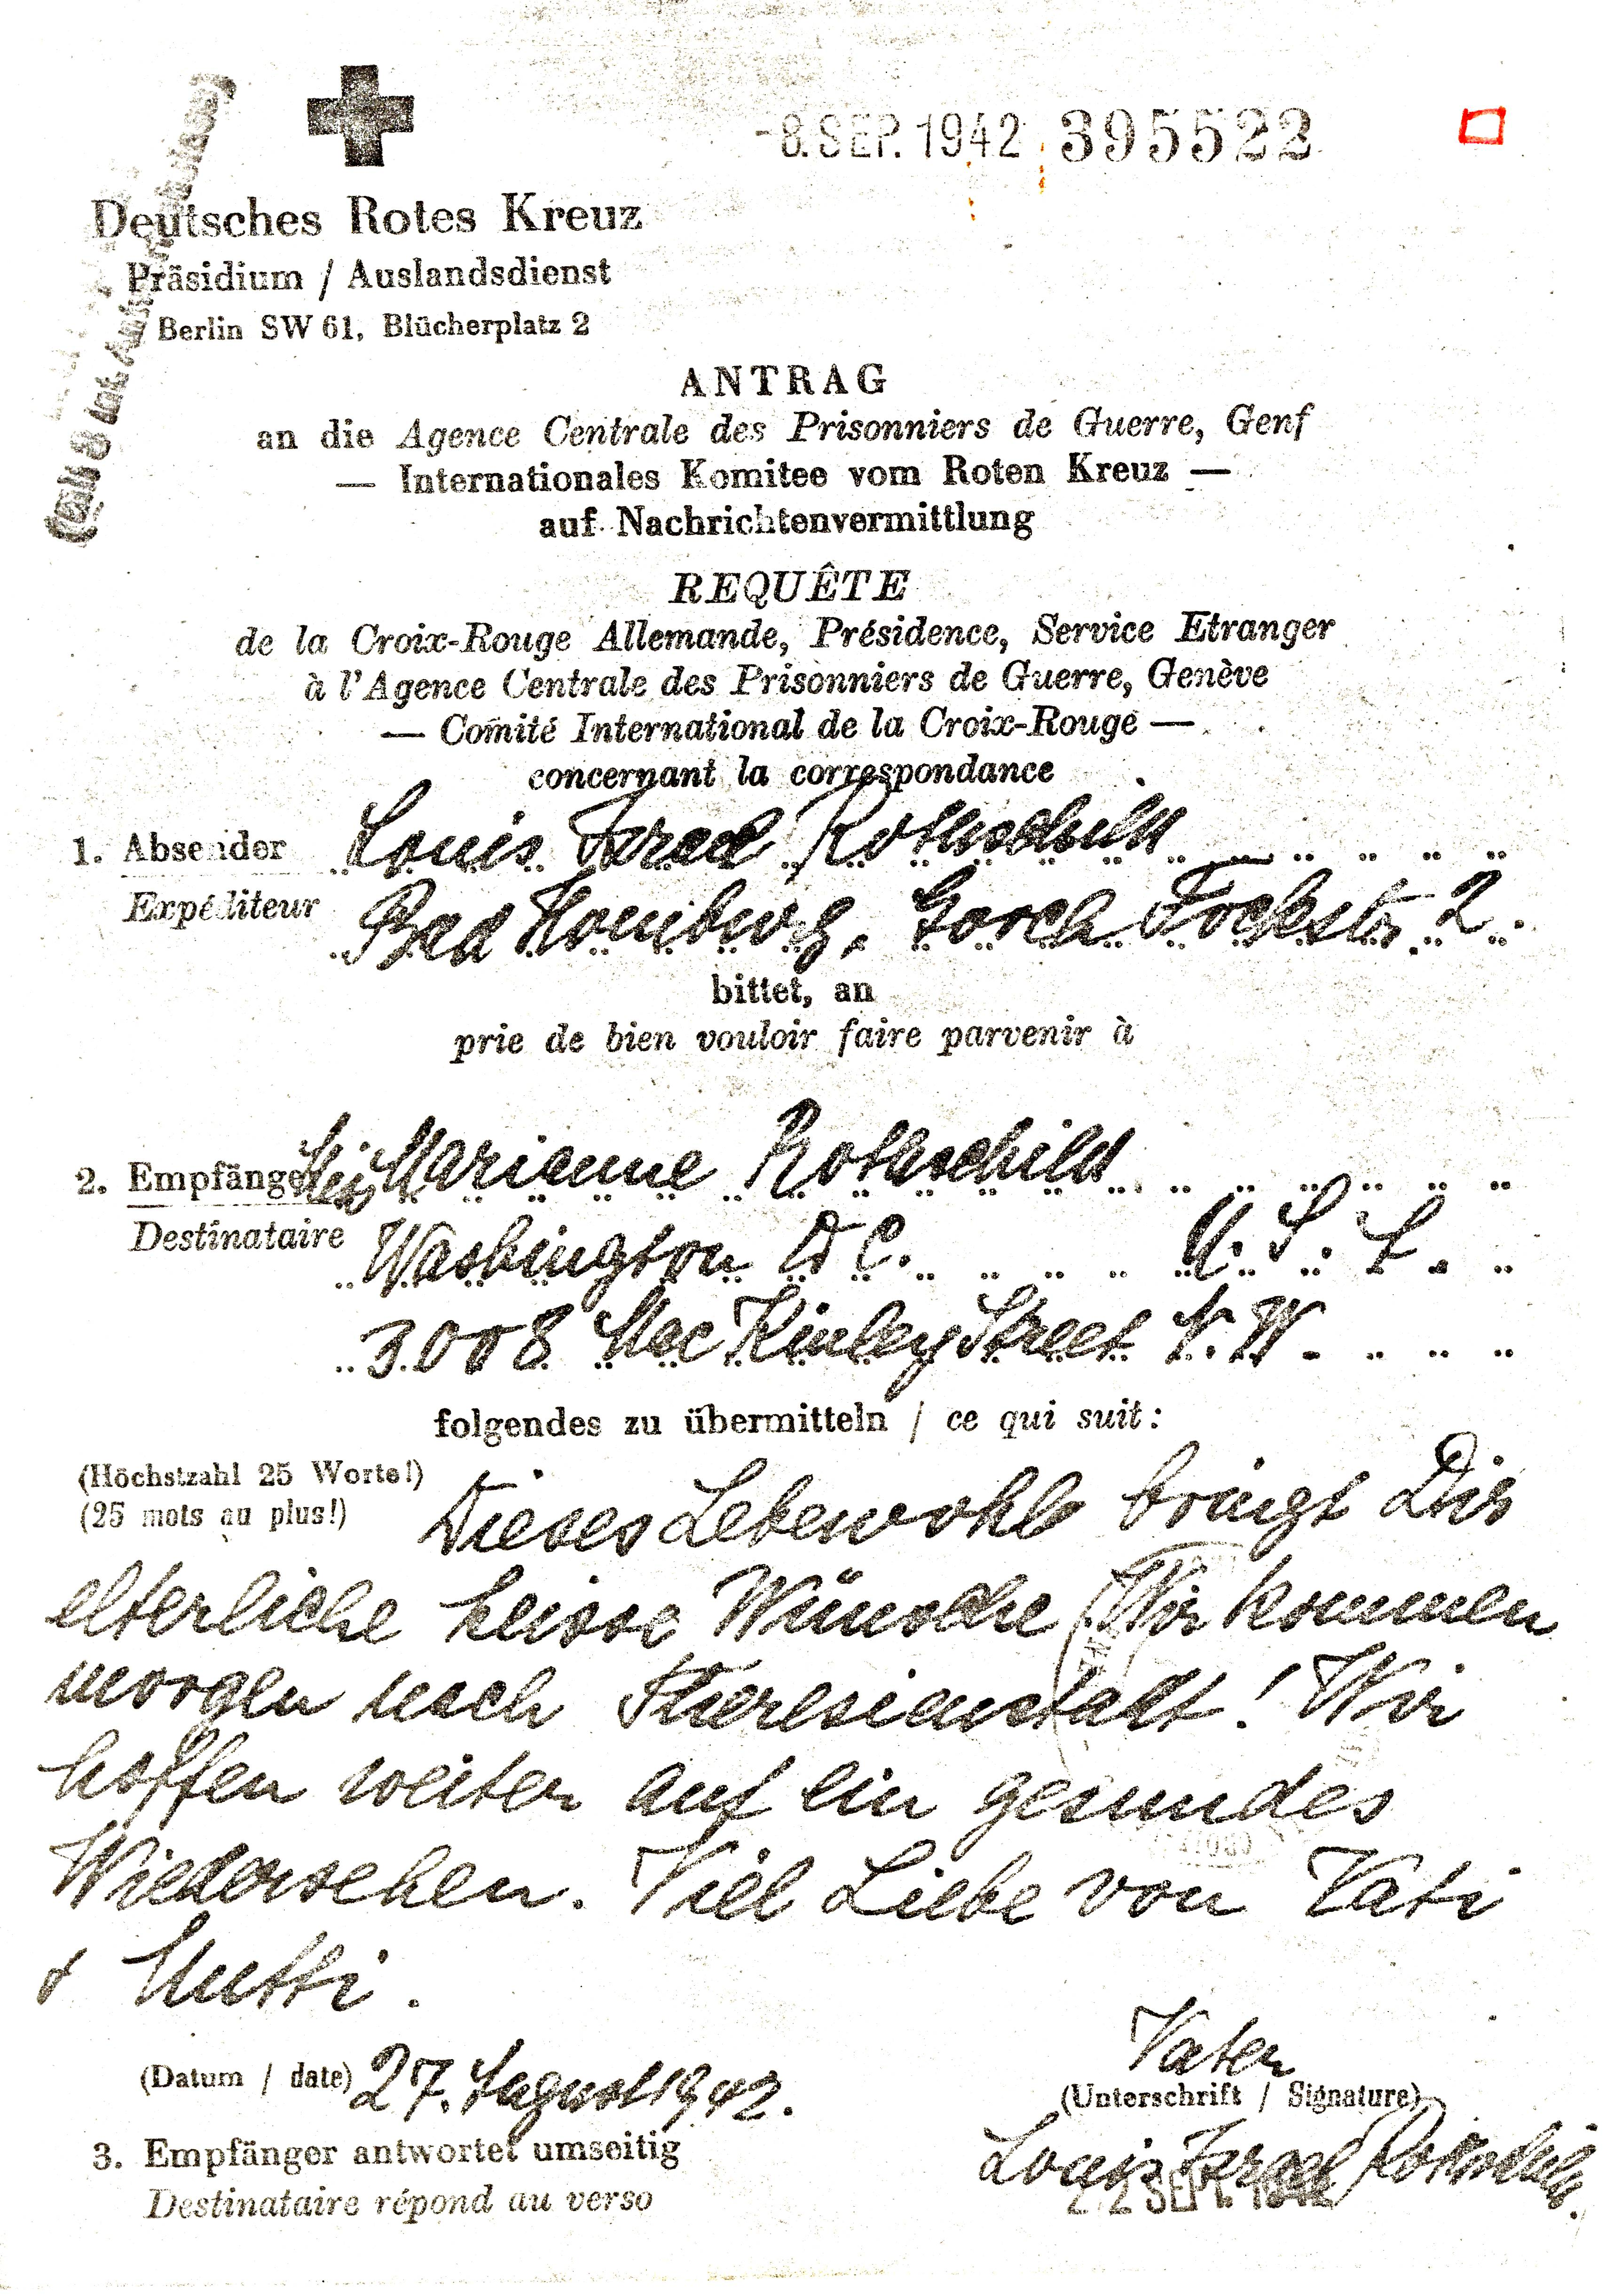 -8. SEP. 1942 395522
Deutsches Rotes Kreuz
Präsidium / Auslandsdienst
Berlin SW 61, Blücherplatz 2
ANTRAG
an die Agence Centrale des Prisonniers de Guerre, Genf
— Internationales Komitee vom Roten Kreuz —
auf Nachrichtenvermittlung
REQUÊTE
de la Croix-Rouge Allemande, Présidence, Service Etranger
à l'Agence Centrale des Prisonniers de Guerre, Genève
— Comité International de la Croix-Rouge —
concernant la correspondance
1. Absender Louis Israel Rothschild
Expéditeur Bad Homburg, Gorch Fockstr. 2.
bittet, an
prie de bien vouloir faire parvenir à
2. Empfänger Miss Marianne Rothschild
Destinataire Washington D C. U. S. A.
3008 Mac Kinley Street N. W.
folgendes zu übermitteln / ce qui suit:
(Höchstzahl 25 Worte!)
(25 mots au plus!)
Dieses Lebewohl bringt Dir
elterliche heisse Wünsche Wir kommen
morgen nach Theresienstadt! Wir
hoffen weiter auf ein gesundes
Wiedersehen. Viel Liebe von Vati
& Mutti.
(Datum / date) 27. August 1942.
Vater
(Unterschrift / Signature)
Louis Israel Rothschild.
22 SEP. 1942
3. Empfänger antwortet umseitig
Destinataire répond au verso